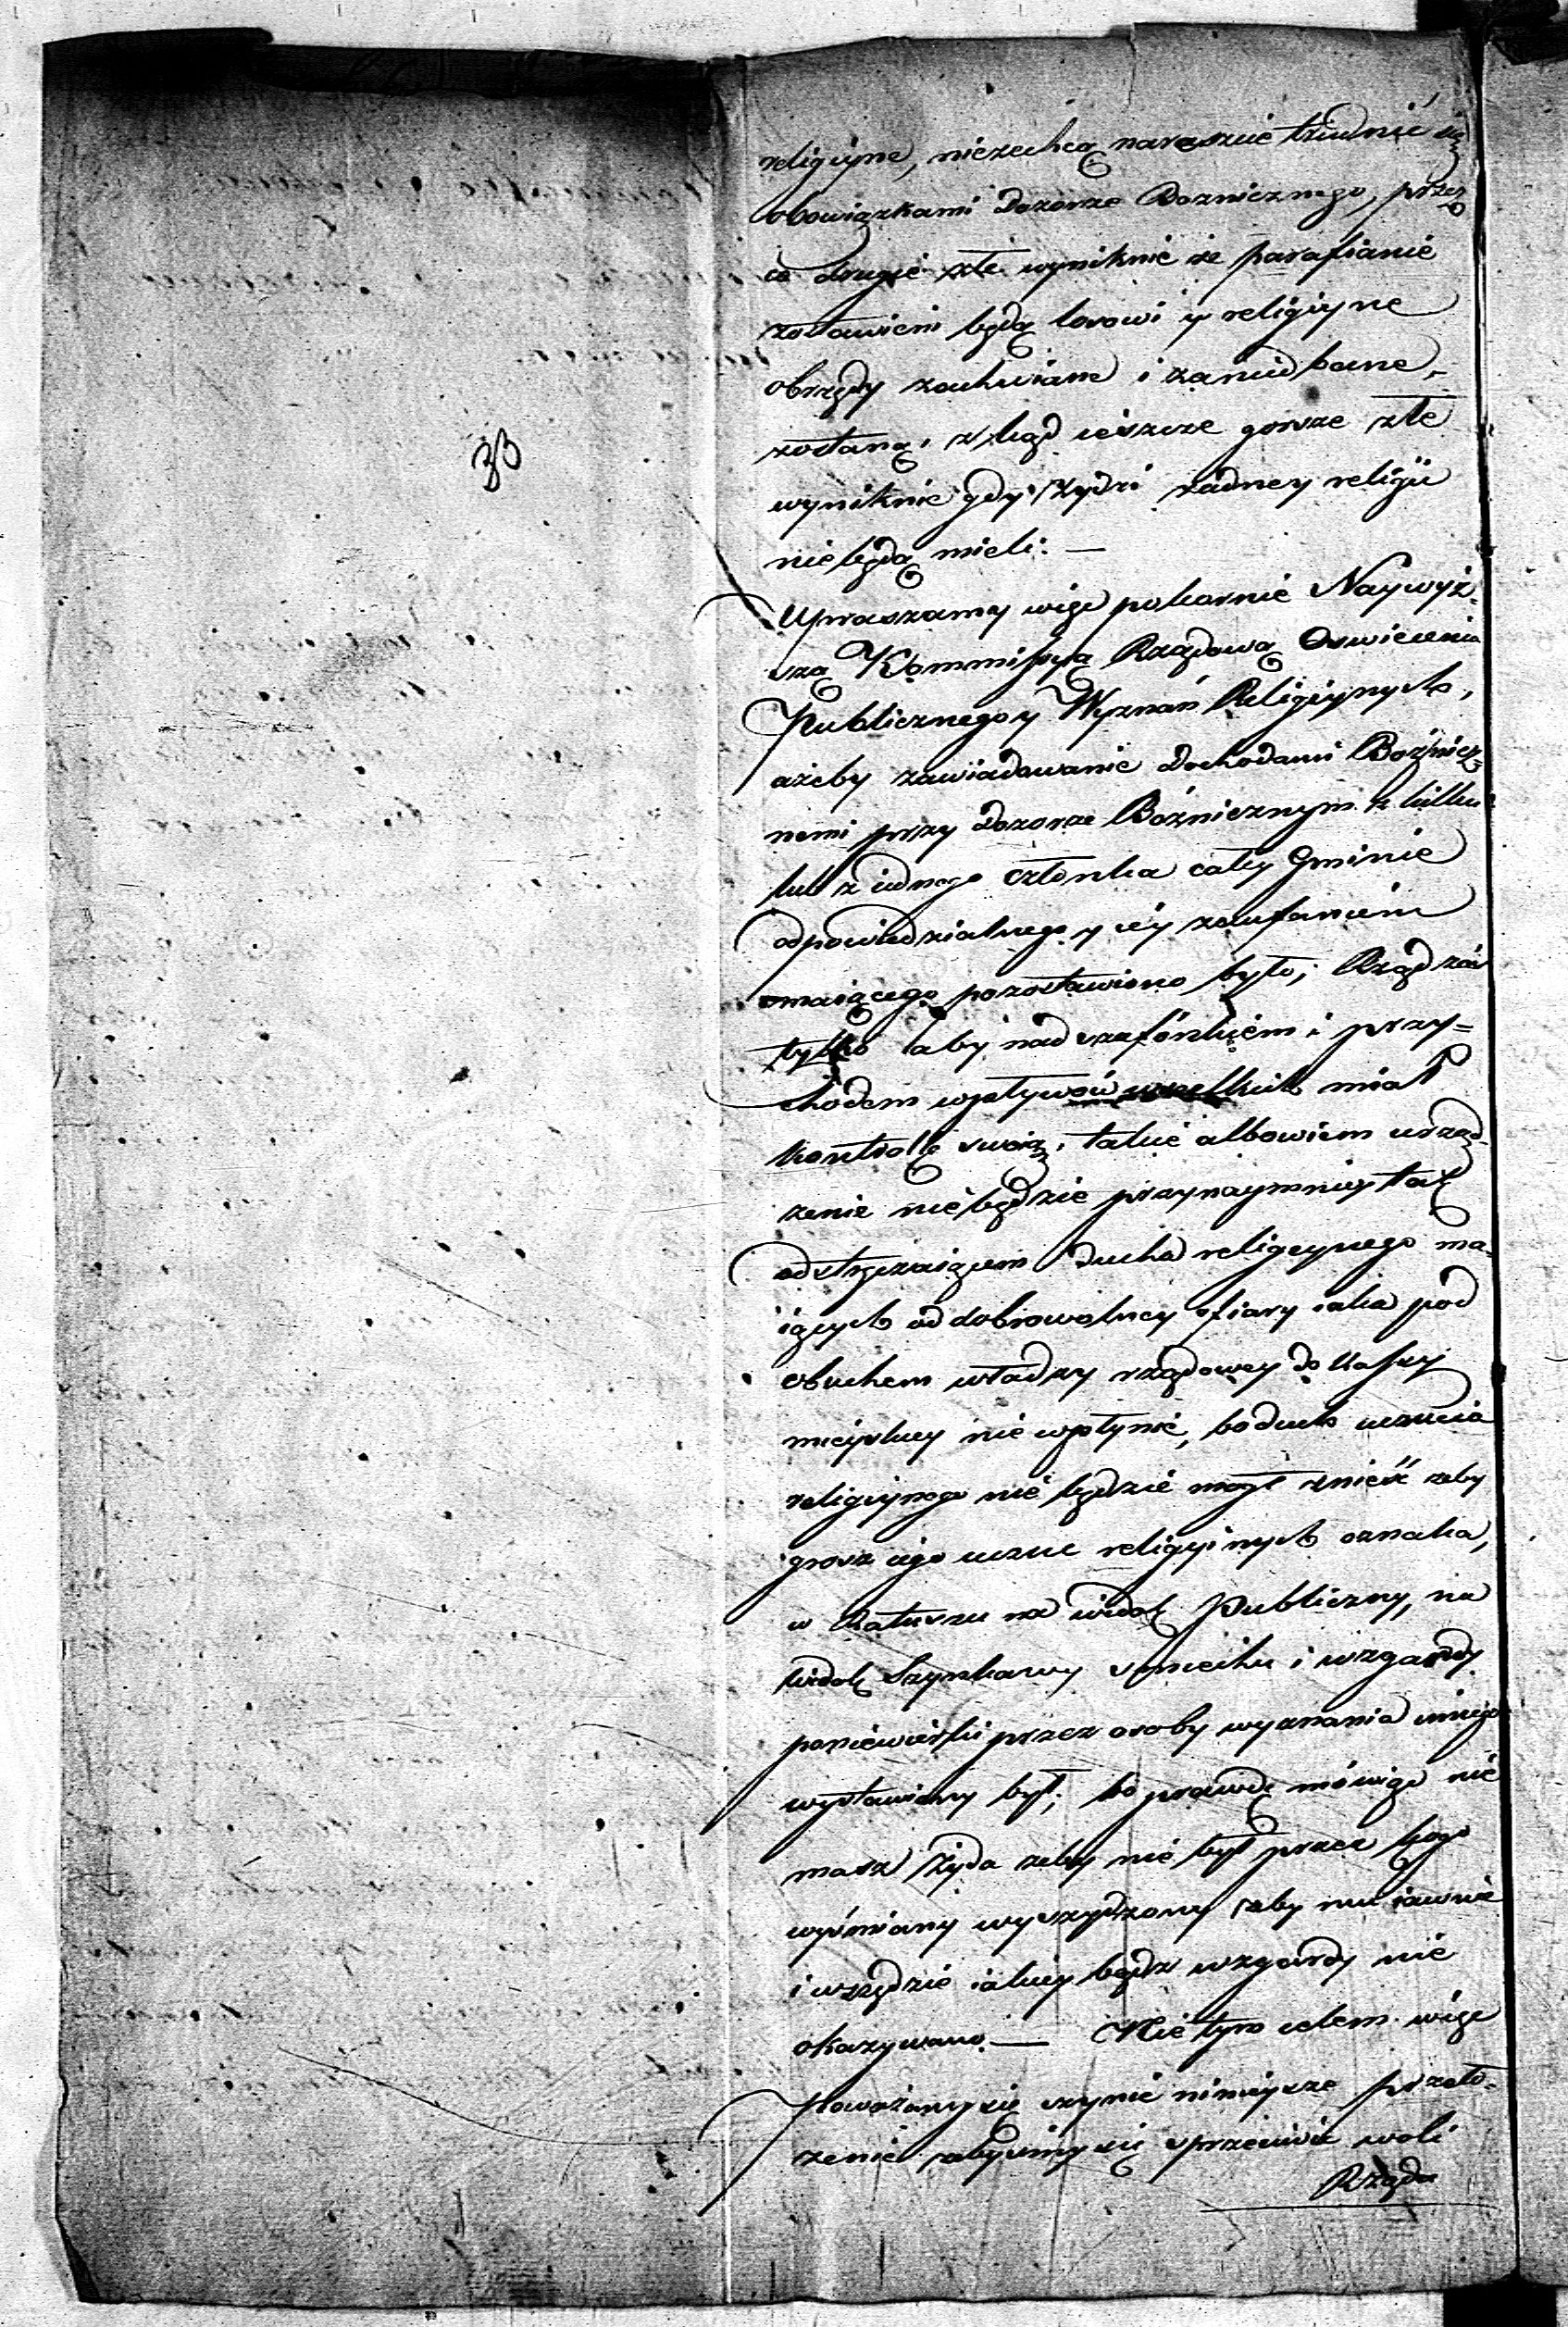 religiyne, niezechcą nareszcie trudnić się
obowiązkami Dozorze Boznicznego, przez
co drugie złe wyniknie że parafianie
zostawieni będą losowi y religiyne
obrzędy zachwiane i zaniedbane,
zostaną, z kąd ieszcze gorsze złe
wyniknie gdy Żydzi żadney religii
nie będą mieli. —
33
Upraszamy więc pokornie Naywyż-
szą Kommissyą Rządową Oswiecenia
Publicznego y Wyznań Religiynych,
ażeby zawiadowanie Dochodami Bożnicz-
nemi przy Dozorze Bóżnicznym z kilku
lub z iednego członka całey Gminie
odpowiedzialnego y iéy zaufaniem
maiącego pozostawiono było; Rząd zaś
tylko aby nad szafónkiem i przy=
chodem wpływów wszelkich miał
kontrolę swoią, takie albowiem urzą-
dzenie nie będzie przynaymniey tak
odstręczaiącem ducha religiynego ma-
iących od dobrowolney ofiary iaka pod
obuchem władzy rządowey do Kassy
mieyskiey nie wpłynie, bo duch uczucia
religiynego nie będzie mógł znieść żeby
grosz iego uczuć religiynych oznaka,
w Ratuszu na widok Publiczny, na
widok Szynkarzy smiechu i wzgardy
poniewierki przez osoby wyznania innego
wystawiony był; bo prawdę mówiąc nie
masz Żyda żeby nie był przez kogo
wyśmiany wyszydzony żeby mu iawnie
i wszędzie iakiey bądz wzgardy nie
okazywano. — Nie tym celem więc
Poważamy się czynić ninieysze przeło-
żenie abyśmy się sprzeciwić woli
Rządu